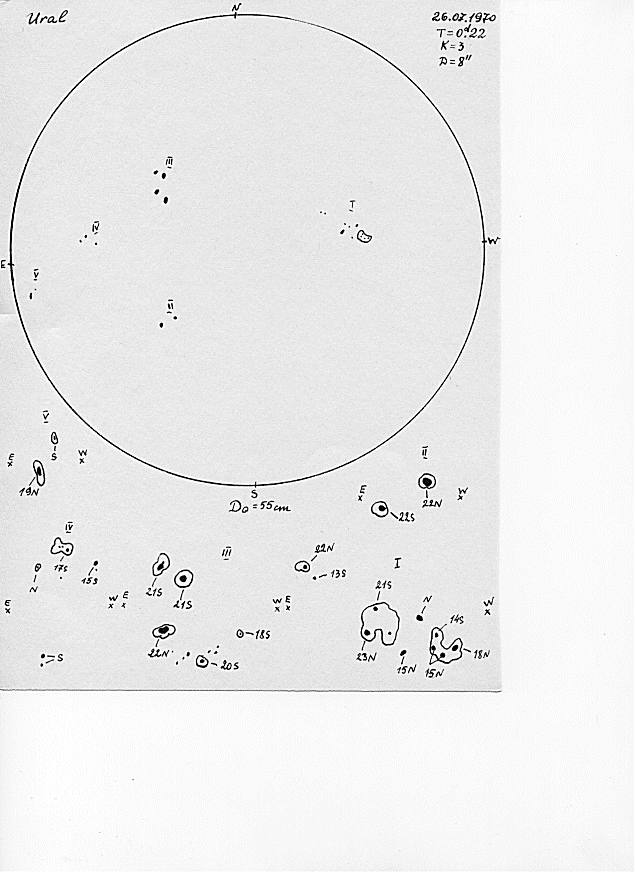 Ural
N
26.07.1970
T=0ᵈ.22
K=3
D=8"
III
I
IV
W
E
V
II
S
D₀=55cm
V
E
S
W
19N
II
E
22N
W
22S
IV
17S
15S
N
E
W
S
III
E
21S
21S
22N
18S
20S
W
I
E
22N
13S
21S
23N
N
15N
14S
15N
18N
W